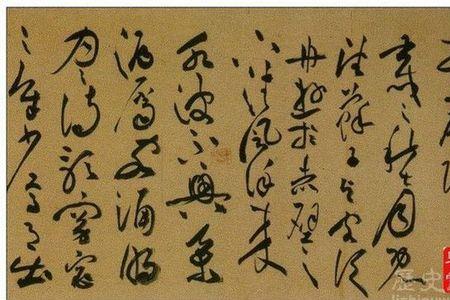 壬戌之秋七月既
望蘇子與客泛
舟遊於赤壁之
下清風徐來
水波不興舉
酒屬客誦明
月之詩歌窈窕
之章少焉月出
歷史